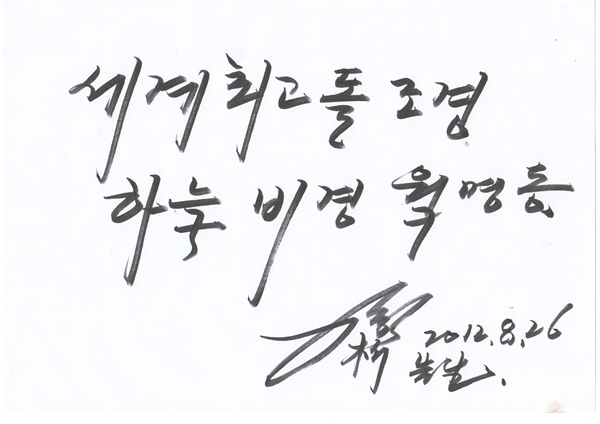 세계 최고 돌 조경
하늘 비경 월명동
2012.8.26